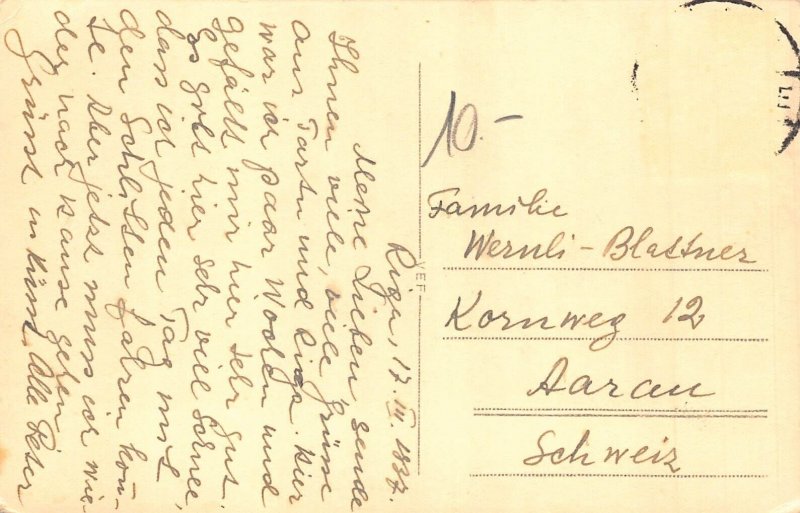 Riga, 17. III. 1937.
Meine Lieben sende
Ihnen viele, viele grüsse
aus Tartu und Riga. Hier
war ich paar Wochen und
gefällt mir hier sehr gut.
Es gibt hier sehr viel Schnee,
dass ich jeden Tag mit
den Schlitten fahren kon-
te. Aber jetzt muss ich wie-
der nach Hause gehen
Grüsst u. küsst Alle Peter
VEF
10.-
Familie
Wernli-Blattner
Kornweg 12
Aarau
Schweiz
III